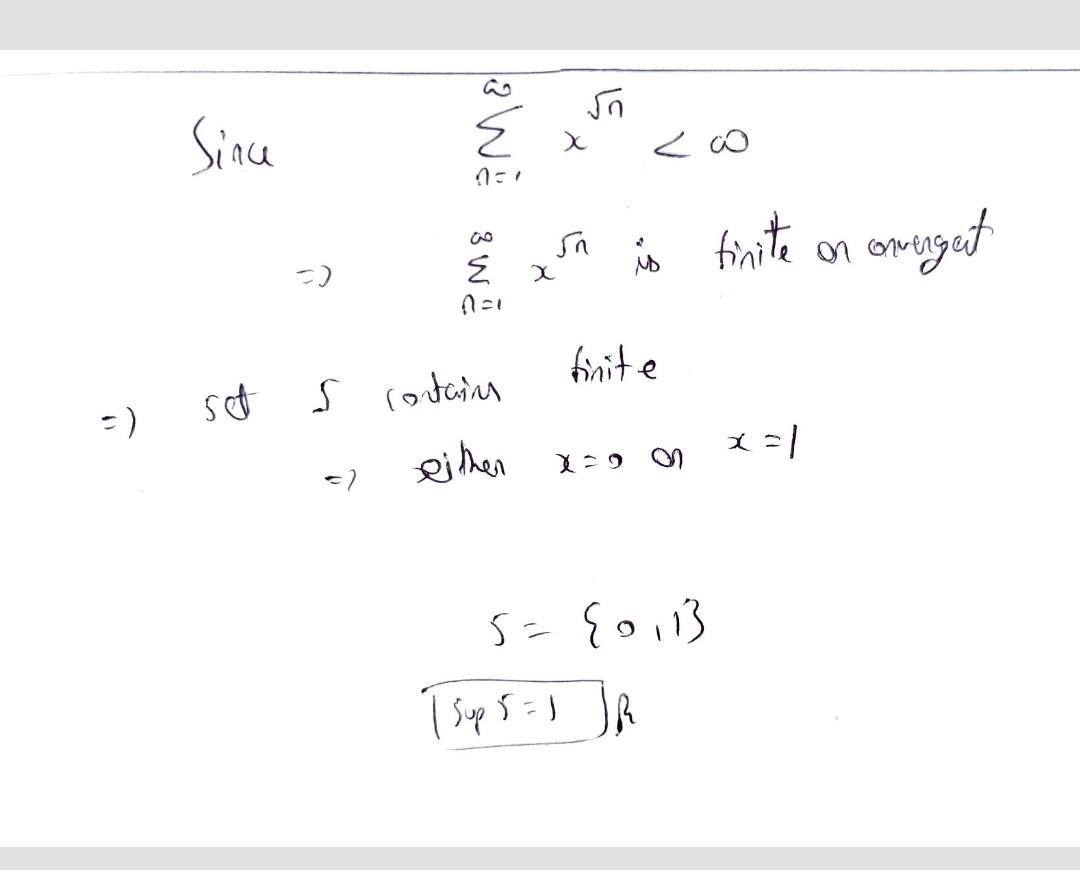 Since ∞ Σ n=1 x^√n < ∞
=> ∞ Σ n=1 x^√n is finite or convergent
=> set S contains finite
=> either x=0 or x=1
S = {0,1}
Sup S = 1